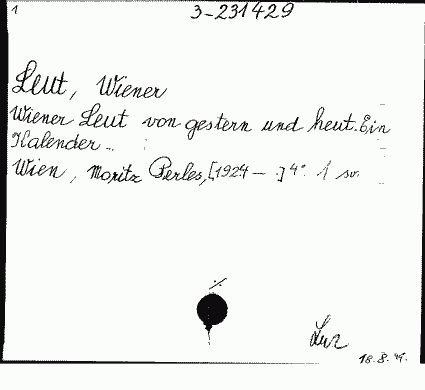 1
3-231429
Leut, Wiener
Wiener Leut von gestern und heut. Ein
Kalender..
Wien, Moritz Perles, [1924 - .] 4° 1 sv.
./.
18.8.